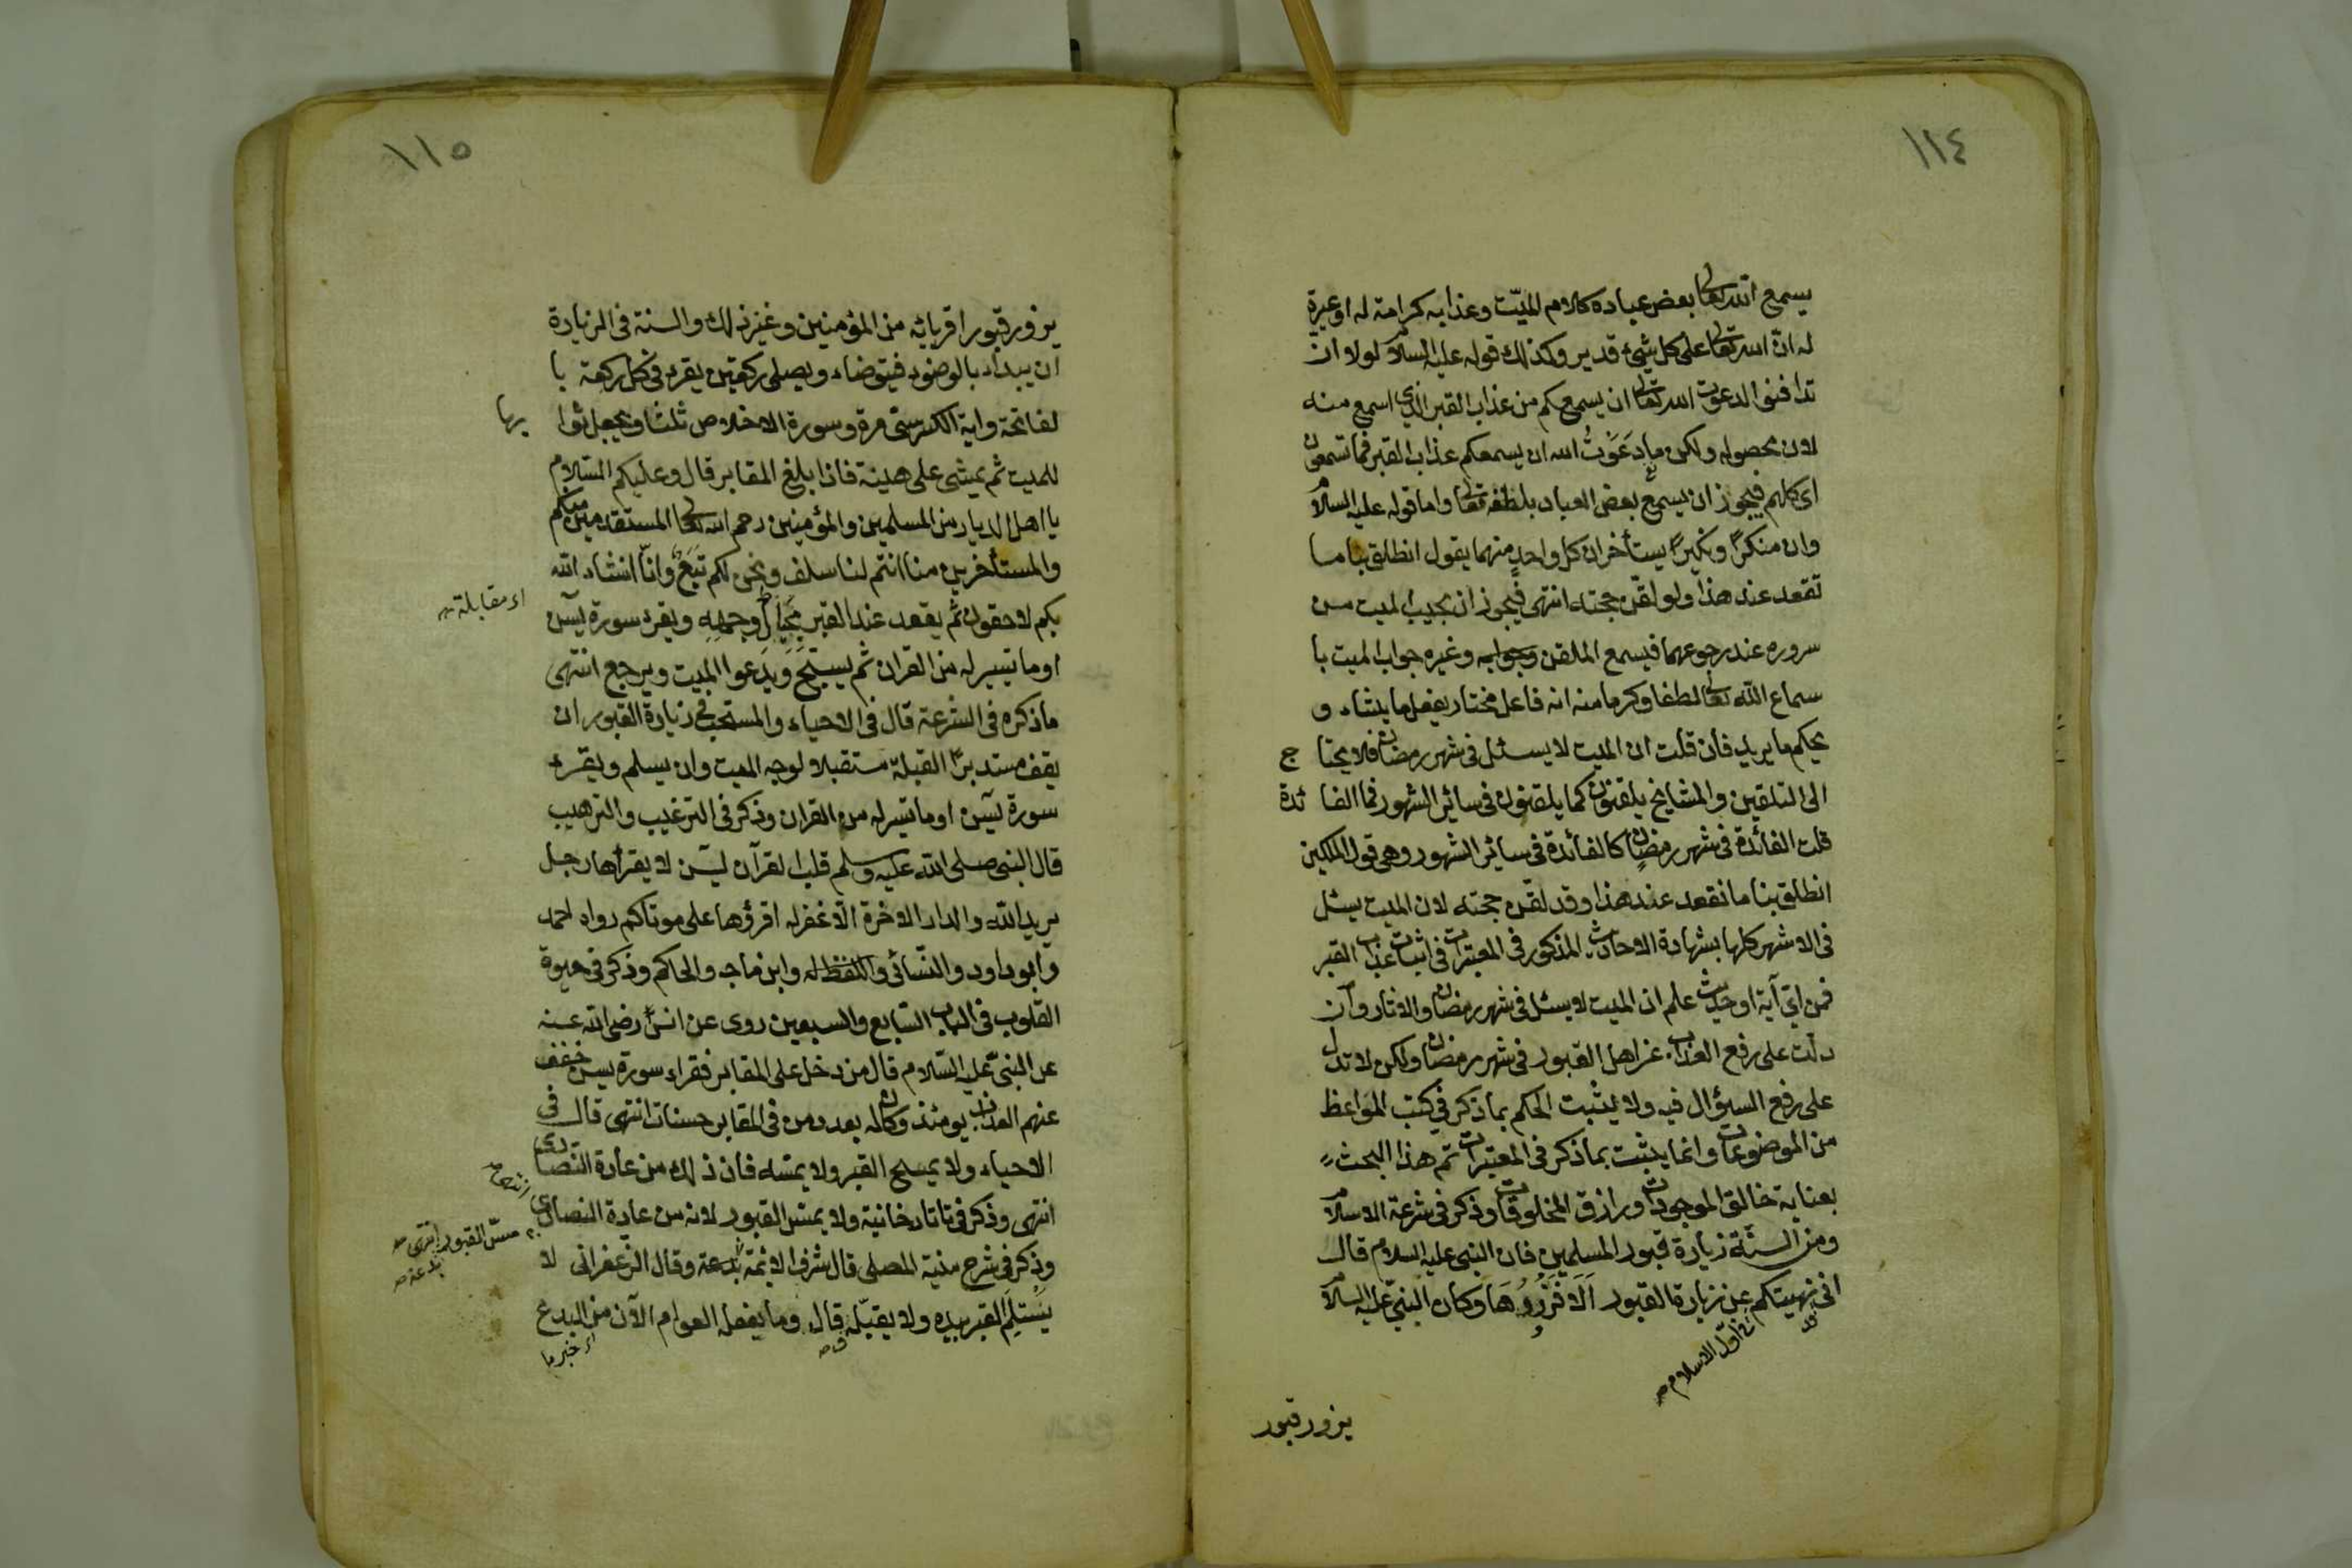 ١١٤
يسمع الله تعالى بعض عباده كلام الميّت وعذابه كرامة له او عبرة
له انّ الله تعالى على كل شيئ قدير وكذلك قوله عليه السلام لولا ان
تدافنوا لدعوت الله تعالى ان يسمعكم من عذاب القبر الذى اسمع منه
لان بحصوله ولكن ما دَعَوْتُ الله ان يسمعكم عذاب القبر فما تسمعون
اى كلهم فيجوز ان يسمع بعض العباد بلطفه تعالى واما قوله عليه السلام
وان منكرًا ونكيرًا يستأخران كل واحدٍ منهما يقول انطلق بنا ما
تقعد عند هذا ولو لقّن حجته انتهى فيجوز ان يجيب الميت من
سروره عند رجوعهما فيسمع الملقن وجوابه وغيره جواب الميت با
سماع الله تعالى لطفا وكرما منه انه فاعل مختار يفعل ما يشاء و
يحكم ما يريد فان قلت ان الميت لا يسئل فى شهر رمضان فلا يحتا ج
الى التلقين والمشايخ يلقنون كما يلقنون فى سائر الشهور فما الفا ئدة
قلت الفائدة فى شهر رمضان كالفائدة فى سائر الشهور وهى قول الملكين
انطلق بنا ما نقعد عند هذا وقد لقّن حجته لان الميت يسئل
فى الاشهر كلها بشهادة الاحاديث المذكور فى المعتبرات فى اثبات عذاب القبر
فمن اىّ آية او حديث علم ان الميت لا يسئل فى شهر رمضان والاثار وان
دلّت على رفع العذاب عن اهل القبور فى شهر رمضان ولكن لا تدل
على رفع السؤال فيه ولا يثبت الحكم بما ذكر فى كتب المواعظ
من الموضوعات وانما يثبت بما ذكر فى المعتبرات تم هذا البحث
بعناية خالق الموجودات ورازق المخلوقات وذكر فى شرعة الاسلام
ومن السنّة زيارة قبور المسلمين فان النبى عليه السلام قال
انى نهيتكم عن زيارة القبور اَلَا فَزُورُوهَا وكان النبىّ عليه السلام
فى اوّل الاسلام صح
يزور قبور
١١٥
يزور قبور اقربائه من المؤمنين وغير ذلك والسنة فى الزيارة
ان يبداء بالوضوء فيتوضاء ويصلى ركعتين يقرء فى كل ركعة با
لفاتحة واية الكرسىّ مرة وسورة الاخلاص ثلثا ويجعل ثوا بها
للميت ثم يمشى على هينة فاذا بلغ المقابر قال وعليكم السلام
يا اهل الديار من المسلمين والمؤمنين رحم الله تعالى المستقدمين منكم
والمستأخرين منا انتم لنا سلف ونحن لكم تَبَعٌ وانّا انشاء الله
بكم لاحقون ثم يقعد عند القبر بِحِيَالِ وجهِهِ ويقرء سورة يسٓ
اى مقابلة
او ما تيسر له من القران ثم يسبّح ويدعوا للميت ويرجع انتهى
ما ذكره فى الشرعة قال فى الاحياء والمستحب فى زيارة القبور ان
يقف مستدبرًا القبلة مستقبلا لوجه الميت وان يسلم ويقرء
سورة يسٓ او ما تيسر له من القران وذكر فى الترغيب والترهيب
قال النبى صلى الله عليه وسلم قلب القرآن يسٓ لا يقرأها رجل
يريد الله والدار الاخرة الّا غفر له اقرؤها على موتاكم رواه احمد
وابو داود والنسائى واللفظ له وابن ماجه والحاكم وذكر فى حيوة
القلوب فى الباب السابع والسبعين روى عن انس رضى الله عنه
عن النبىّ عليه السّلام قال من دخل على المقابر فقراء سورة يس خفف
عنهم العذاب يومئذ وكان له بعدد من فى المقابر حسنات انتهى قال فى
الاحياء ولا يمسح القبر ولا يمسّه فان ذلك من عادة النصارى
انتهى وذكر فى تاتارخانية ولا يمسّ القبور لانه من عادة النصارى انتهى
وذكر فى شرح منية المصلى قال شرف الائمة بدعة وقال الزعفرانى لا
مسّ القبور
بدعة صح
يَسْتَلِمُ القبر بيده ولا يقبّله قال وما يفعل العوام الآن من البدع